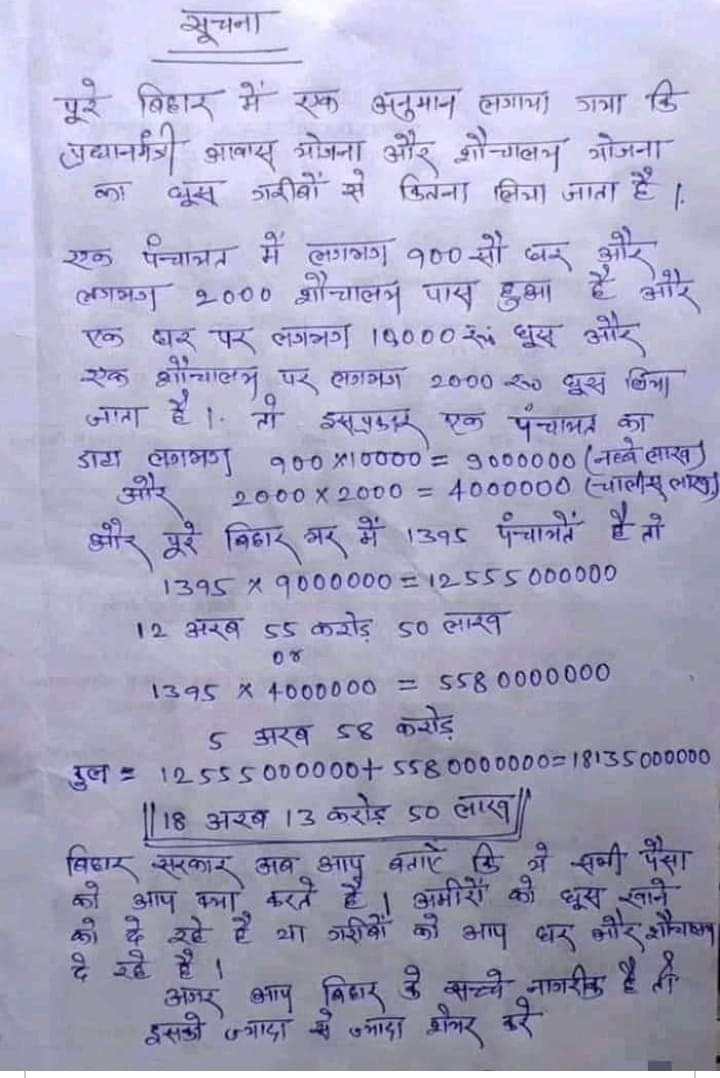 सूचना
पूरे बिहार में एक अनुमान लगाया गया कि
प्रधानमंत्री आवास योजना और शौचालय योजना
का घूस गरीबों से कितना लिया जाता है।
एक पंचायत में लगभग 900 सौ घर और
लगभग 2000 शौचालय पास हुआ है और
एक घर पर लगभग 10000 रू० घूस और
एक शौचालय पर लगभग 2000 रू० घूस लिया
जाता है। तो इसप्रकार एक पंचायत का
डाटा लगभग 900 × 10000 = 9000000 (नब्बे लाख)
और 2000 × 2000 = 4000000 (चालीस लाख)
और पूरे बिहार भर में 1395 पंचायतें है तो
1395 × 9000000 = 12555000000
12 अरब 55 करोड़ 50 लाख
or
1395 × 4000000 = 5580000000
5 अरब 58 करोड़
कुल = 12555000000 + 5580000000 = 18135000000
||18 अरब 13 करोड़ 50 लाख||
बिहार सरकार अब आप बताएँ कि ये सभी पैसा
को आप क्या करते है। अमीरों को घूस खाने
को दे रहे है या गरीबों को आप घर और शौचालय
दे रहे है।
अगर आप बिहार के सच्चे नागरीक है तो
इसको ज्यादा से ज्यादा शेयर करे